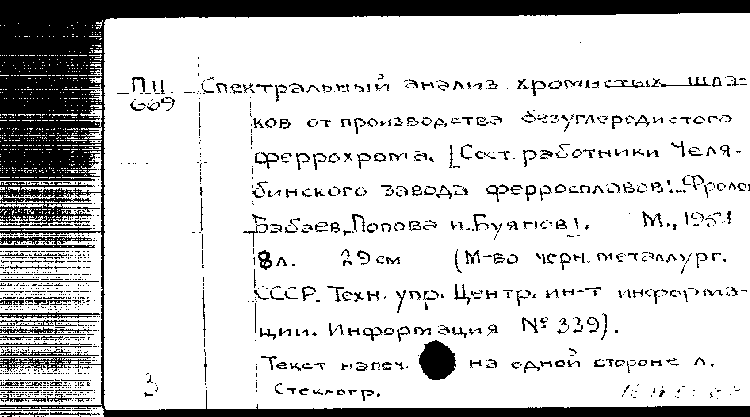 П.11 Спектральный анализ хромистых шла-
669
ков от производства безуглеродистого
феррохрома. [Сост. работники Челя-
бинского завода ферросплавов: Фролов
Бабаев, Попова и Буянов].  М., 1951
8л.  29см  (М-во черн. металлург.
СССР. Техн. упр. Центр. ин-т информа-
ции. Информация № 339).
Текст напеч. на одной стороне л.
3 Стеклогр.